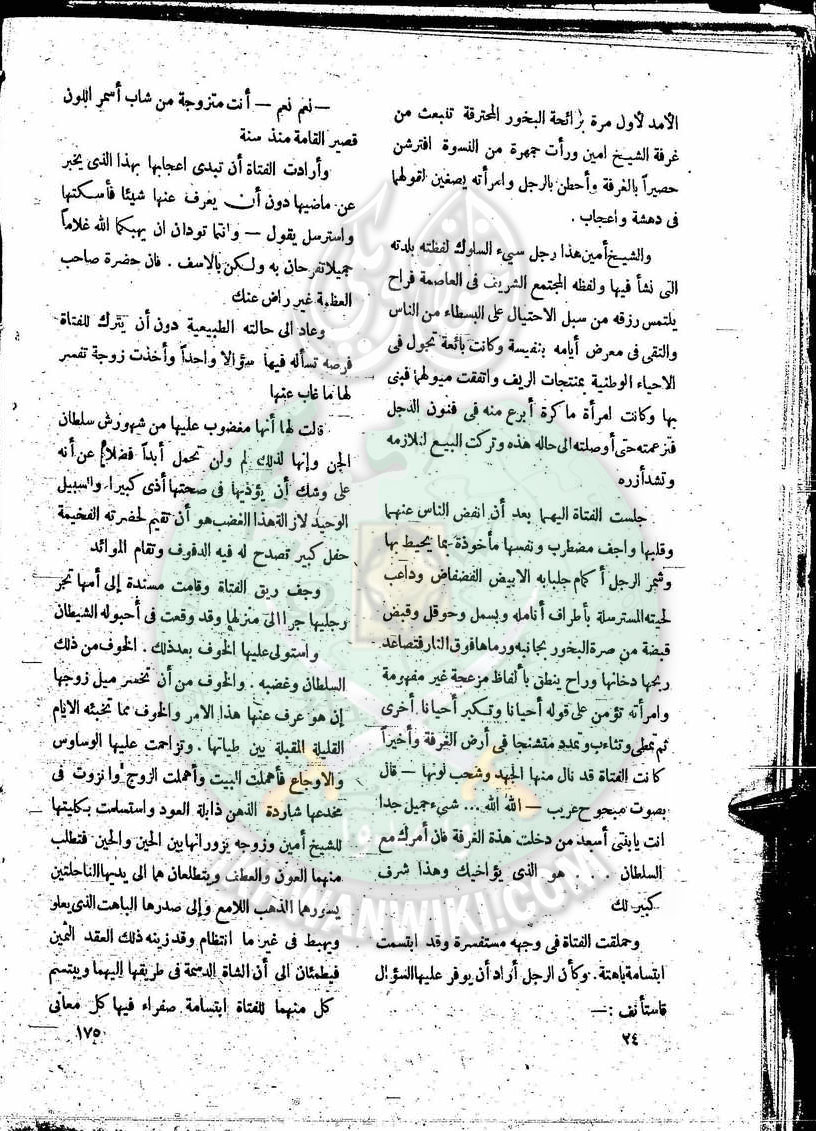 الأمد لأول مرة برائحة البخور المحترقة تنبعث من
غرفة الشيخ امين ورأت جمهرة من النسوة افترشن
حصيراً بالغرفة وأحطن بالرجل وامرأته يصغين لقولهما
فى دهشة واعجاب .
والشيخ أمين هذا رجل سيء السلوك لفظته بلدته
التى نشأ فيها ولفظه المجتمع الشريف فى العاصمة فراح
يلتمس رزقه من سبل الاحتيال على البسطاء من الناس
والتقى فى معرض أيامه بنفيسة وكانت بائعة تجول فى
الاحياء الوطنية بمنتجات الريف واتفقت ميولهما فبنى
بها وكانت امرأة ماكرة أبرع منه فى فنون الدجل
فتزعمته حتى أوصلته الى حاله هذه وتركت البيع لتلازمه
وتشد أزره
جلست الفتاة اليهما بعد أن انفض الناس عنهما
وقلبها واجف مضطرب ونفسها مأخوذة بما يحيط بها
وشمر الرجل أكمام جلبابه الابيض الفضفاض وداعب
لحيته المسترسلة بأطراف أنامله وبسمل وحوقل وقبض
قبضة من صرة البخور بجانبه ورماها فوق النار فتصاعد
ريحها دخانها وراح ينطق بألفاظ مزعجة غير مفهومة
وامرأته تؤمن على قوله أحيانا وتكبر أحيانا أخرى
ثم تمطى وتثاءب وتمدد متشنجا فى أرض الغرفة وأخيراً
كانت الفتاة قد نال منها الجهد وشحب لونها — قال
بصوت مبحوح غريب — الله الله ... شيء جميل جدا
انت يابنتى أسعد من دخلت هذة الغرفة فان أمرك مع
السلطان . . . هو الذى يؤاخيك وهذا شرف
كبير لك
وحملقت الفتاة فى وجهه مستفسرة وقد ابتسمت
ابتسامة باهتة . وكأن الرجل أراد أن يوفر عليها السؤال
فاستأنف : —
٢٤
— نعم نعم — أنت متزوجة من شاب أسمر اللون
قصير القامة منذ سنة
وأرادت الفتاة أن تبدى اعجابها بهذا الذى يخبر
عن ماضيها دون أن يعرف عنها شيئا فأسكتها
واسترسل يقول — وانتما تودان ان يهبكما الله غلاماً
جميلا تفرحان به ولكن بالاسف . فان حضرة صاحب
العظمة غير راض عنك
وعاد الى حالته الطبيعية دون أن يترك للفتاة
فرصه تسأله فيها سؤالا واحداً وأخذت زوجة تفسر
لها ما غاب عنها
قالت لها أنها مغضوب عليها من شهورش سلطان
الجن وإنها لذلك لم ولن تحمل أبداً فضلا عن أنه
على وشك أن يؤذيها فى صحتها أذى كبيرا والسبيل
الوحيد لازالة هذا الغضب هو أن تقيم لحضرته الفخيمة
حفل كبير تصدح له فيه الدفوف وتقام الموائد
وجف ريق الفتاة وقامت مستندة إلى أمها تجر
رجليها جرا الى منزلها وقد وقعت فى أحبوله الشيطان
واستولى عليها الخوف بعد ذلك . الخوف من ذلك
السلطان وغضبه . والخوف من أن تخسر ميل زوجها
إن هو عرف عنها هذا الامر والخوف مما تخبئه الايام
القليلة المقبلة بين طياتها . وتزاحمت عليها الوساوس
والاوجاع فأهملت البيت وأهملت الزوج وانزوت فى
مخدعها شاردة الذهن ذابلة العود واستسلمت بكليتها
للشيخ أمين وزوجه يزورانها بين الحين والحين فتطلب
منهما العون والعطف ويتطلعان هما الى يديها الناحلتين
يسورهما الذهب اللامع وإلى صدرها الباهت الذى يعلو
ويهبط فى غير ما انتظام وقد زينه ذلك العقد الثمين
فيطمئنان الى أن الشاة الدسمة فى طريقها إليهما ويبتسم
كل منهما للفتاة ابتسامة صفراء فيها كل معانى
١٧٥
IKHWANWIKI.COM